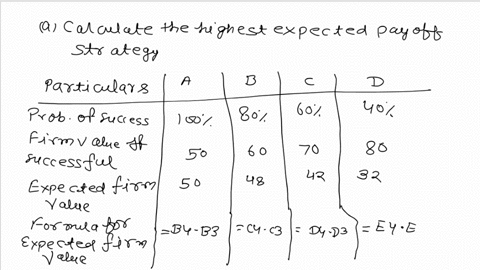 (a) Calculate the highest expected payoff
strategy
Particulars A B C D
Prob. of success 100% 80% 60% 40%
Firm value if
successful 50 60 70 80
Expected firm
value 50 48 42 32
Formula for
Expected firm
value =B4*B3 =C4*C3 =D4*D3 =E4*E